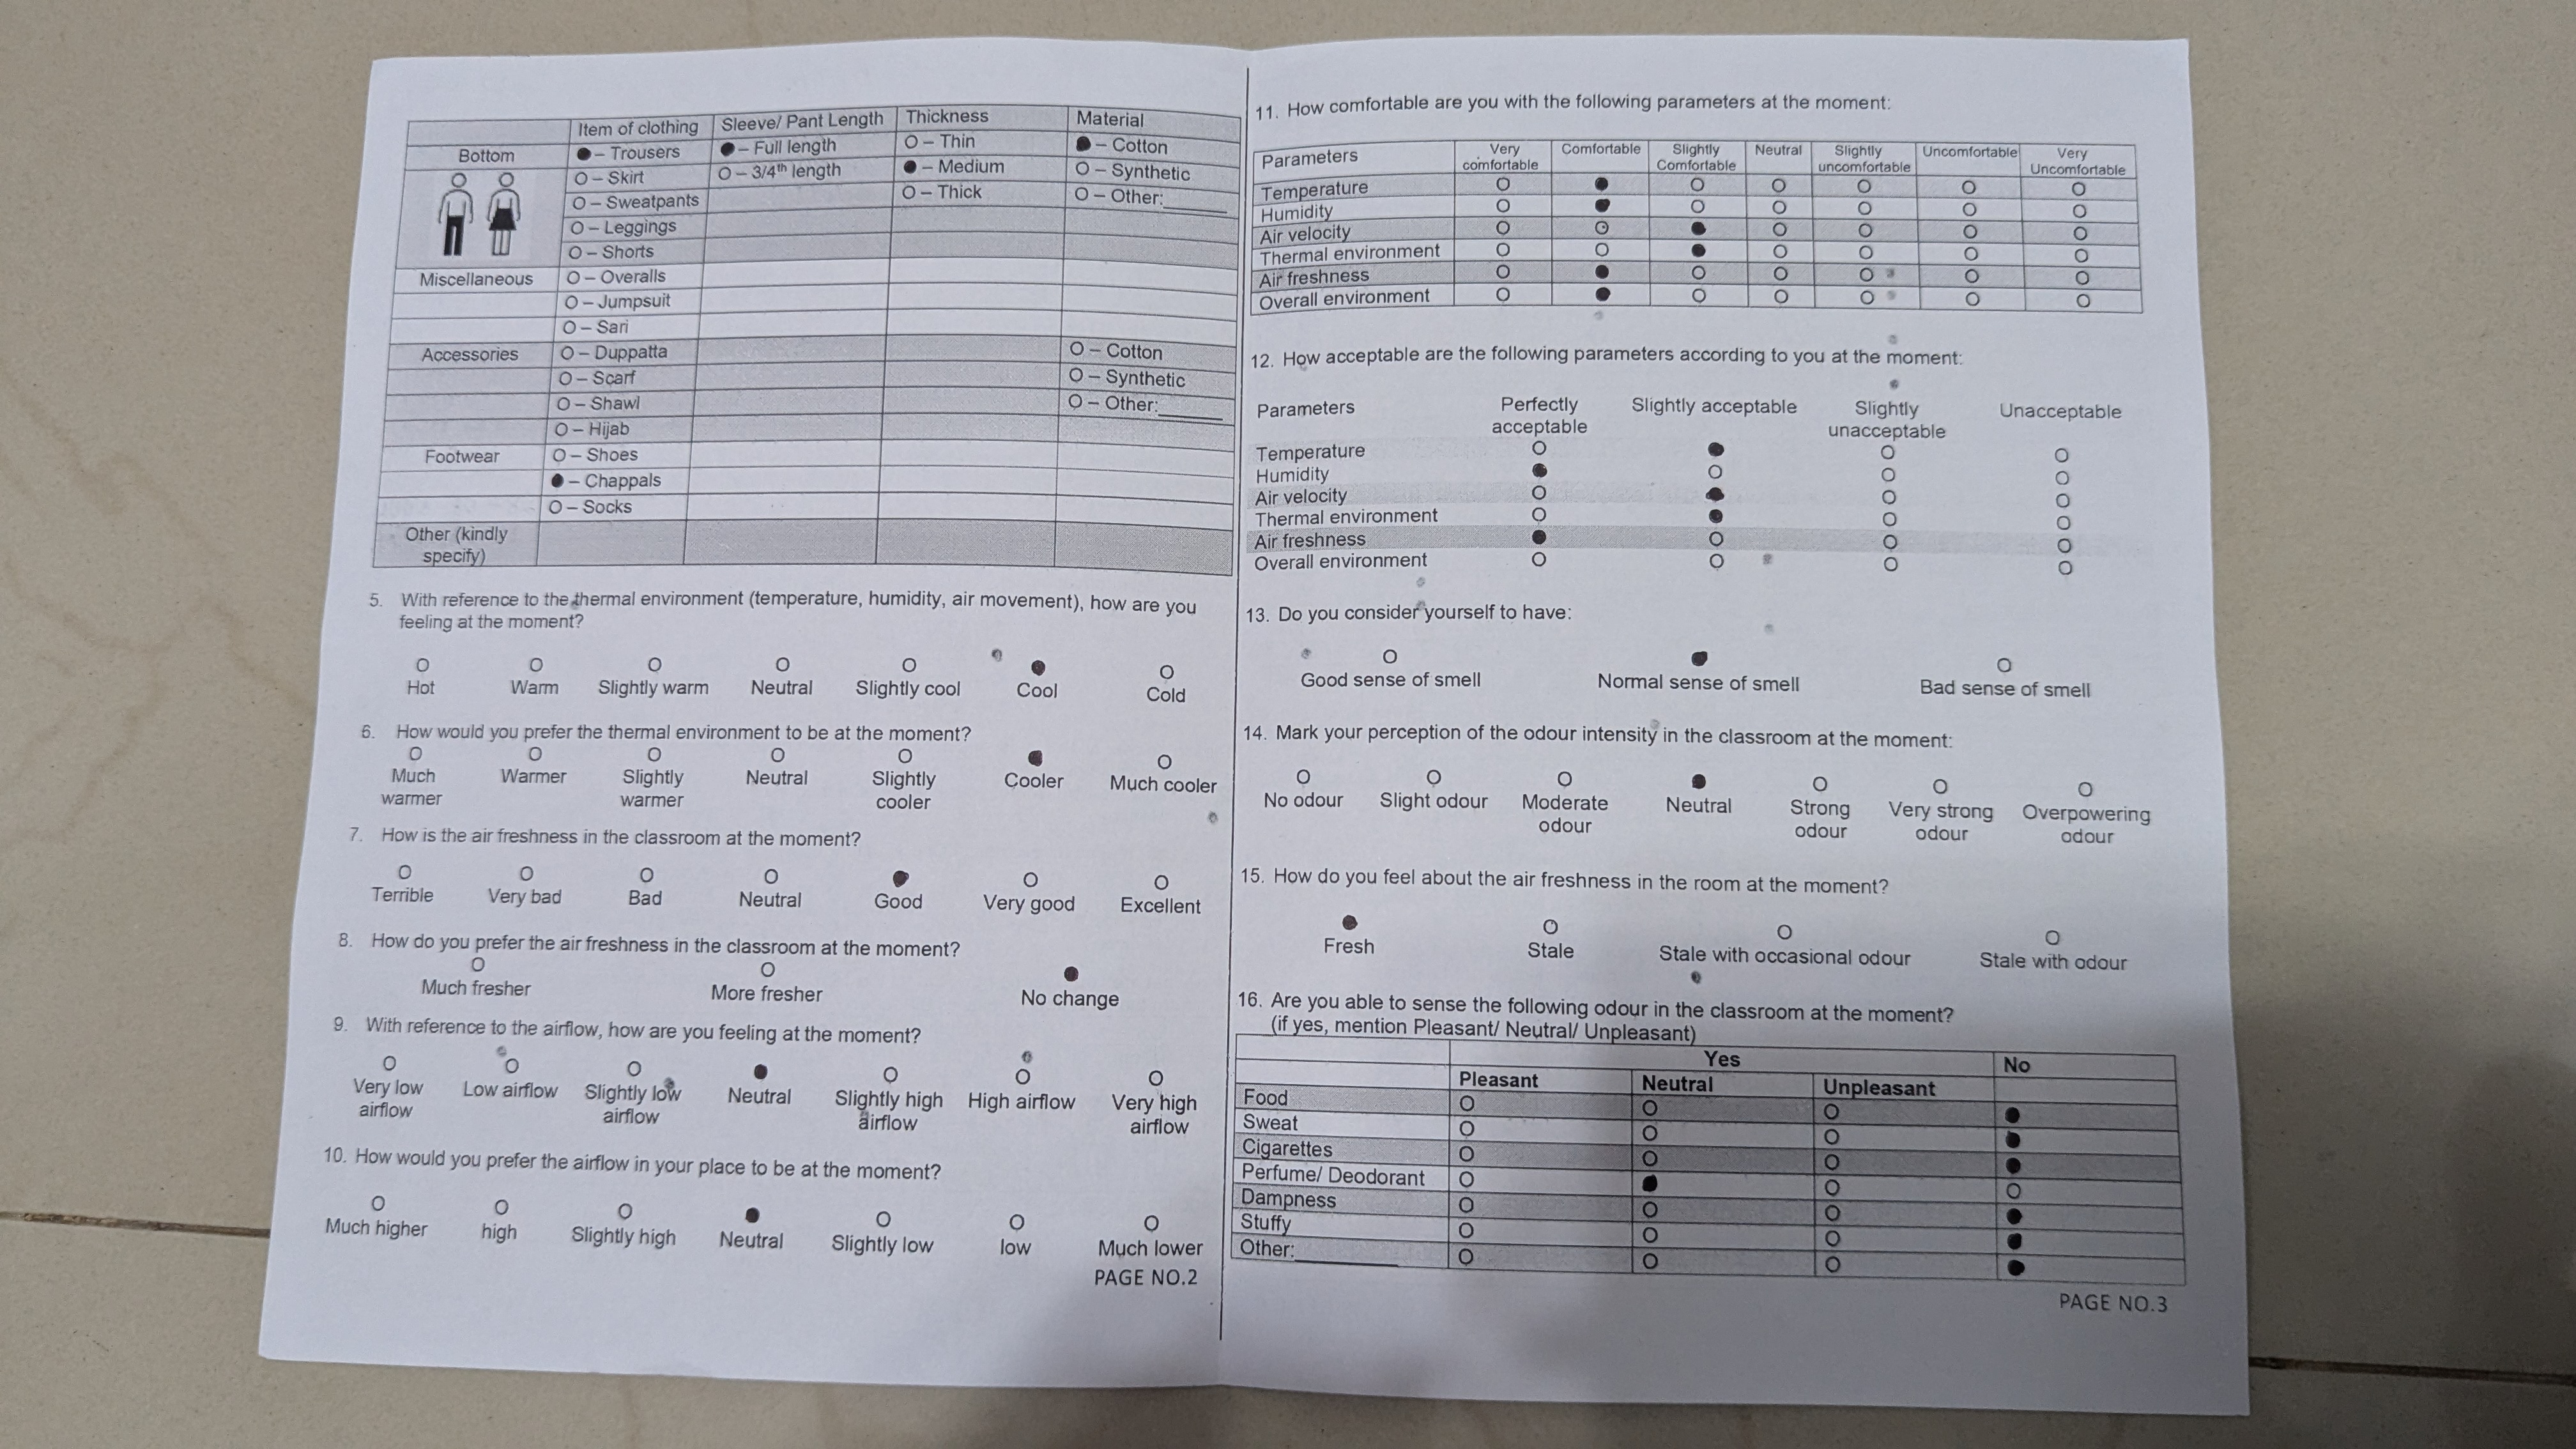 Item of clothing Sleeve/ Pant Length Thickness Material
Bottom ● – Trousers ● – Full length O – Thin ● – Cotton
O – Skirt O – 3/4th length ● – Medium O – Synthetic
O – Sweatpants O – Thick O – Other:______
O – Leggings
O – Shorts
Miscellaneous O – Overalls
O – Jumpsuit
O – Sari
Accessories O – Duppatta O – Cotton
O – Scarf O – Synthetic
O – Shawl O – Other:______
O – Hijab
Footwear O – Shoes
● – Chappals
O – Socks
Other (kindly
specify)
5. With reference to the thermal environment (temperature, humidity, air movement), how are you
feeling at the moment?
O O O O O ● O
Hot Warm Slightly warm Neutral Slightly cool Cool Cold
6. How would you prefer the thermal environment to be at the moment?
O O O O O ● O
Much Warmer Slightly Neutral Slightly Cooler Much cooler
warmer warmer cooler
7. How is the air freshness in the classroom at the moment?
O O O O ● O O
Terrible Very bad Bad Neutral Good Very good Excellent
8. How do you prefer the air freshness in the classroom at the moment?
O O ●
Much fresher More fresher No change
9. With reference to the airflow, how are you feeling at the moment?
O O O ● O O O
Very low Low airflow Slightly low Neutral Slightly high High airflow Very high
airflow airflow airflow airflow
10. How would you prefer the airflow in your place to be at the moment?
O O O ● O O O
Much higher high Slightly high Neutral Slightly low low Much lower
PAGE NO.2
11. How comfortable are you with the following parameters at the moment:
Parameters Very Comfortable Slightly Neutral Slightly Uncomfortable Very
comfortable Comfortable uncomfortable Uncomfortable
Temperature O ● O O O O O
Humidity O ● O O O O O
Air velocity O O ● O O O O
Thermal environment O O ● O O O O
Air freshness O ● O O O O O
Overall environment O ● O O O O O
12. How acceptable are the following parameters according to you at the moment:
Parameters Perfectly Slightly acceptable Slightly Unacceptable
acceptable unacceptable
Temperature O ● O O
Humidity ● O O O
Air velocity O ● O O
Thermal environment O ● O O
Air freshness ● O O O
Overall environment O O O O
13. Do you consider yourself to have:
O ● O
Good sense of smell Normal sense of smell Bad sense of smell
14. Mark your perception of the odour intensity in the classroom at the moment:
O O O ● O O O
No odour Slight odour Moderate Neutral Strong Very strong Overpowering
odour odour odour odour
15. How do you feel about the air freshness in the room at the moment?
● O O O
Fresh Stale Stale with occasional odour Stale with odour
16. Are you able to sense the following odour in the classroom at the moment?
(if yes, mention Pleasant/ Neutral/ Unpleasant)
Yes No
Pleasant Neutral Unpleasant
Food O O O ●
Sweat O O O ●
Cigarettes O O O ●
Perfume/ Deodorant O ● O O
Dampness O O O ●
Stuffy O O O ●
Other:__________ O O O ●
PAGE NO.3